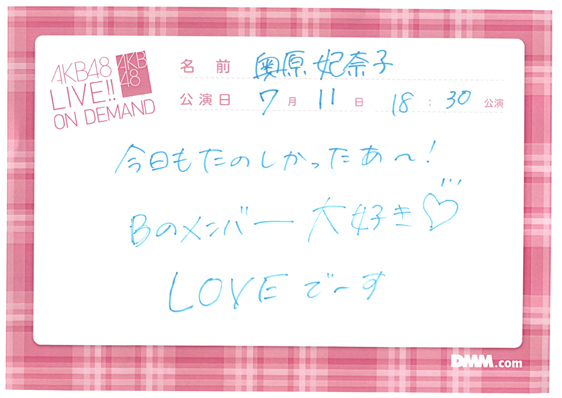 AKB48
LIVE!!
ON DEMAND
AKB
48
名前 奥原 妃奈子
公演日 7月 11日 18:30 公演
今日もたのしかったあ〜!
Bのメンバー 大好き♡
LOVEでーす
DMM.com